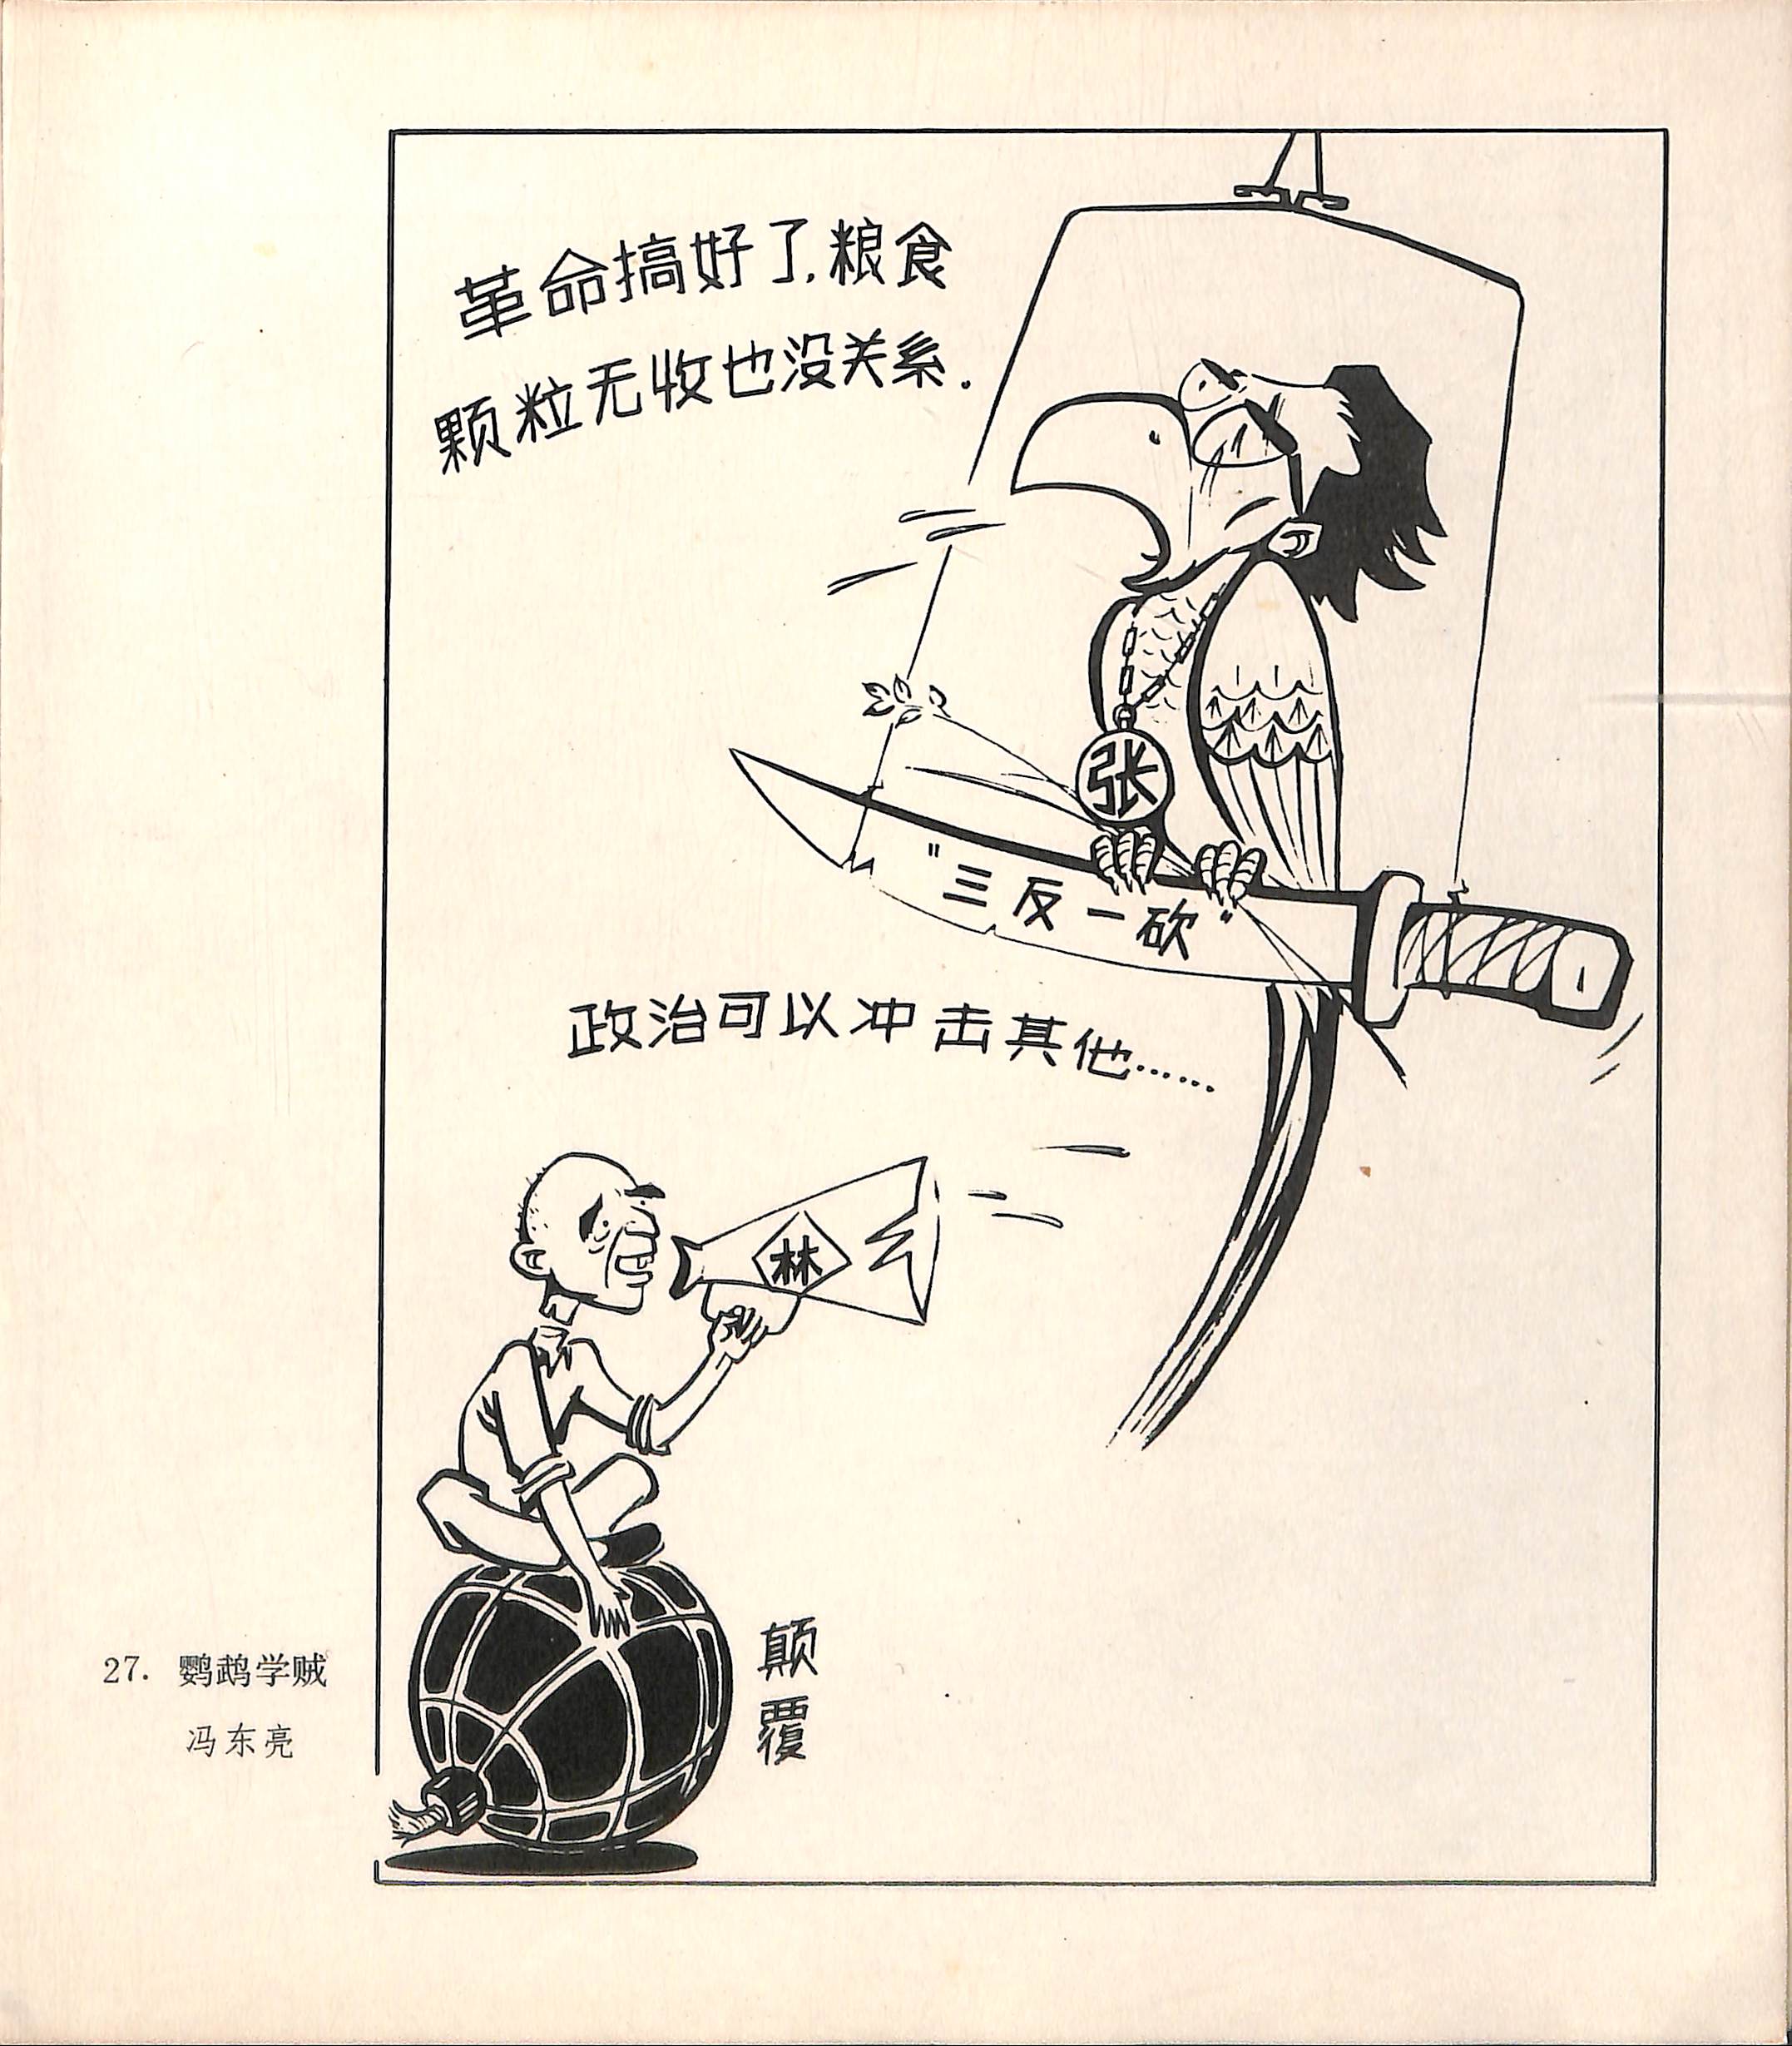 革命搞好了,粮食
颗粒无收也没关系.
张
"三反一砍"
政治可以冲击其他……
林
颠
覆
27. 鹦鹉学贼
冯东亮